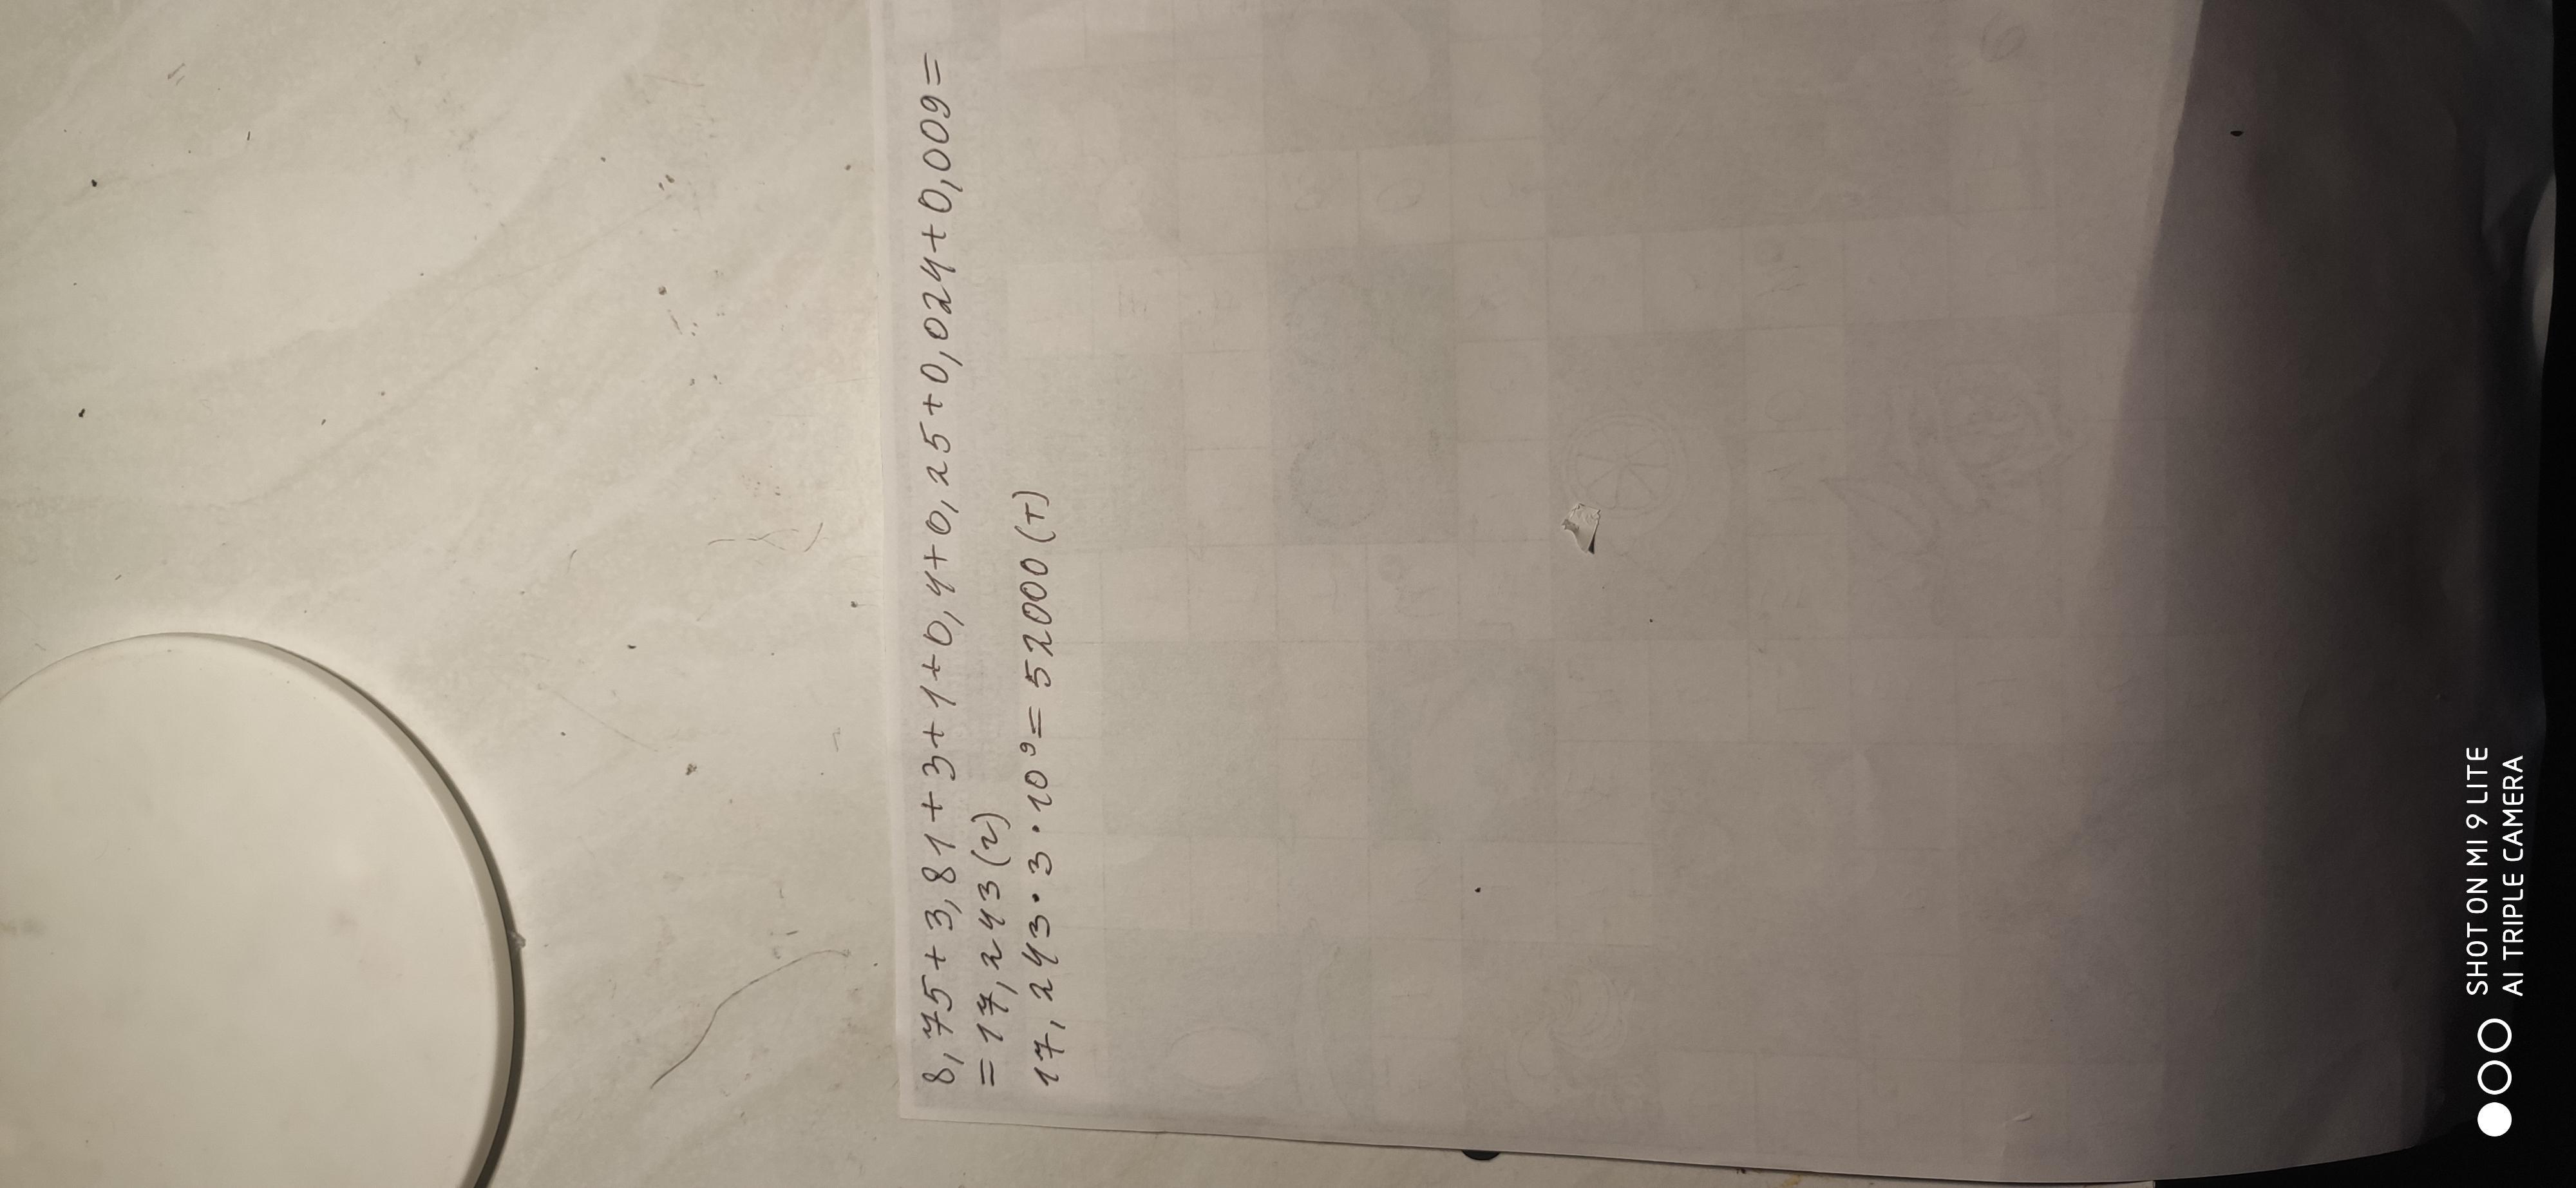 8,75+3,81+3+1+0,4+0,25+0,024+0,009=
=17,243(г)
17,243•3•10⁹=52000(т)
SHOT ON MI 9 LITE
AI TRIPLE CAMERA